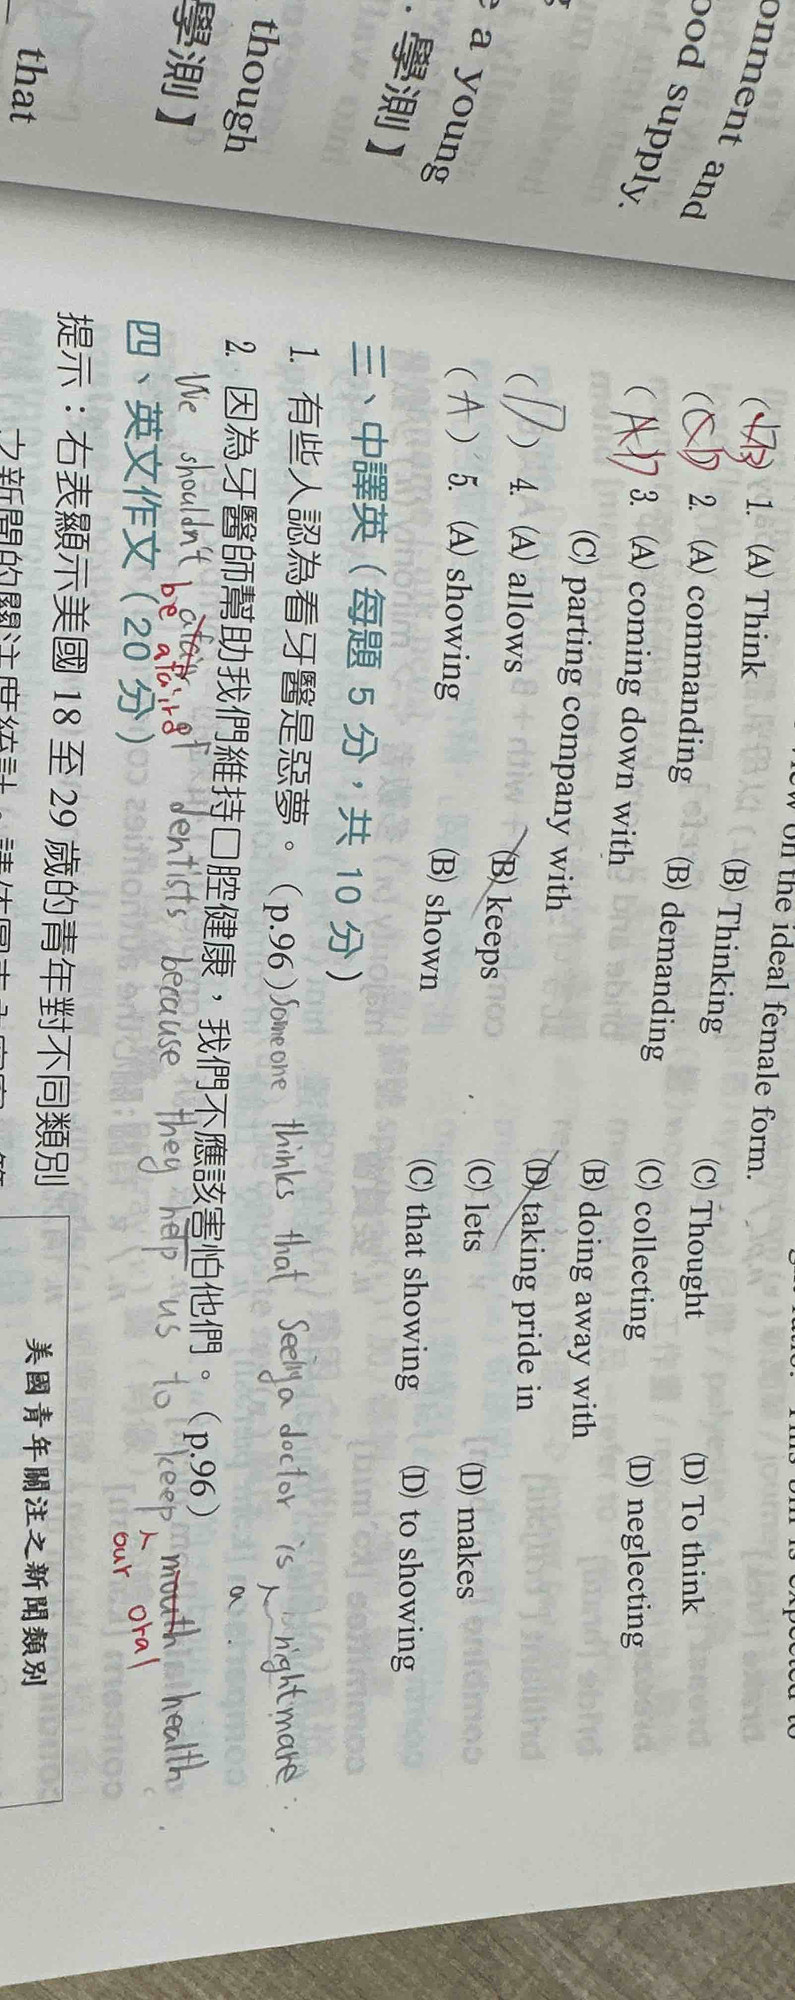 onment and
ood supply.
e a young
學測】
though
學測】
that
view on the ideal female form.
(B) 1. (A) Think (B) Thinking (C) Thought (D) To think
(C D) 2. (A) commanding (B) demanding (C) collecting (D) neglecting
(A D) 3. (A) coming down with (B) doing away with
(C) parting company with (D) taking pride in
(D) 4. (A) allows (B) keeps (C) lets (D) makes
(A) 5. (A) showing (B) shown (C) that showing (D) to showing
三、中譯英（每題 5 分，共 10 分）
1. 有些人認為看牙醫是惡夢。（p.96) Someone thinks that Seeing a doctor is a nightmare.
2. 因為牙醫師幫助我們維持口腔健康，我們不應該害怕他們。（p.96）
We shouldn't be afaird of dentists because they help us to keep our oral mouth health.
四、英文作文（20 分）
提示：右表顯示美國 18 至 29 歲的青年對不同類別
之新聞的關注度統計。請依
美國青年關注之新聞類別